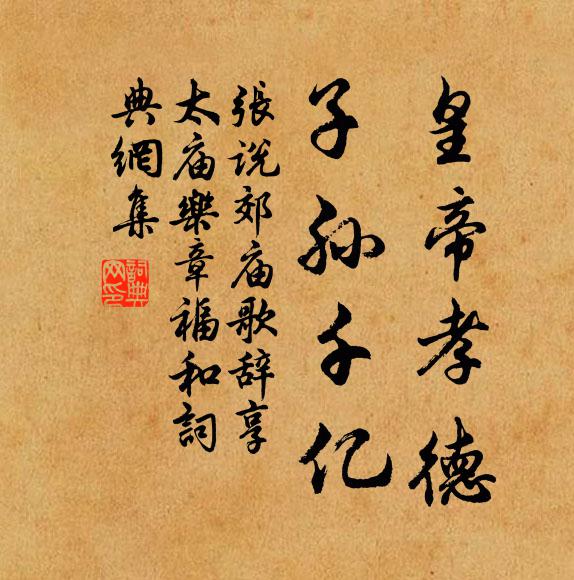 皇帝孝德
子孙千亿
張说郊庙歌辞享
太庙樂章福和詞
典網集
詞典网印